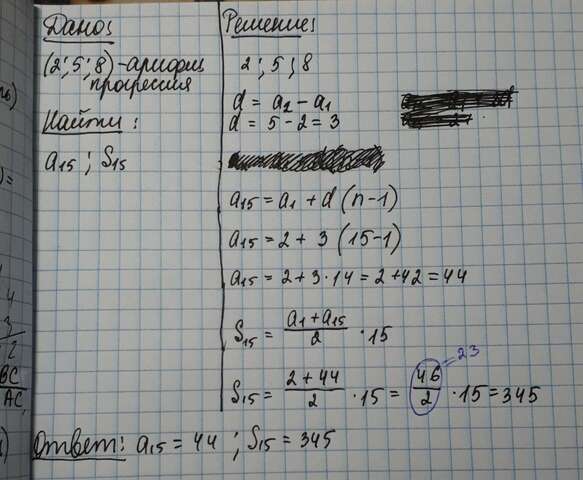 Дано:
(2; 5; 8) - арифм.
прогрессия
Найти:
a₁₅ ; S₁₅
Решение:
2 ; 5 ; 8
d = a₂ - a₁
d = 5 - 2 = 3
a₁₅ = a₁ + d (n-1)
a₁₅ = 2 + 3 (15-1)
a₁₅ = 2 + 3 · 14 = 2 + 42 = 44
S₁₅ = (a₁ + a₁₅)/2 · 15
S₁₅ = (2 + 44)/2 · 15 = 46/2 · 15 = 345
= 23
Ответ: a₁₅ = 44 ; S₁₅ = 345
4
3
2
BC
AC